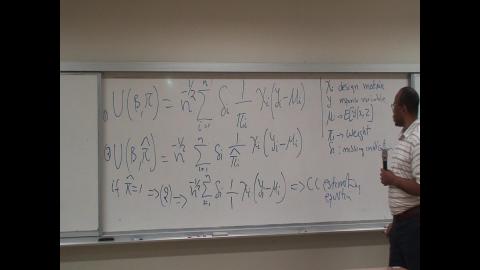 1) U(β, π) = n^{-1/2} Σ_{i=1}^{n} δi 1/πi Xi(yi - μi)
2) U(β, π̂) = n^{-1/2} Σ_{i=1}^{n} δi 1/π̂i Xi(yi - μi)
if π̂=1 ⇒ (2) ⇒ n^{-1/2} Σ_{i=1}^{n} δi 1/1 Xi(yi - μi) ⇒ CC estimating
equation
Xi design matrix
y variable
μ → E[y|x,z]
πi → weight
δi : missing